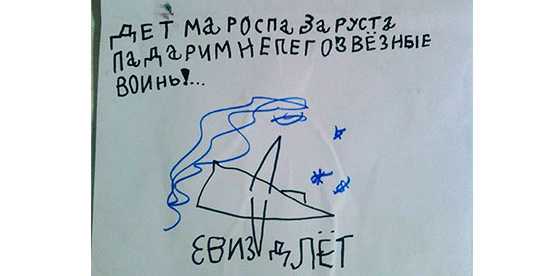 ДЕТ МАРОСПАЗАРУСТА
ПАДАРИМНЕПЕГОЗВЁЗНЫЕ
ВОИНЫ!...
ЄВИЗДЛЁТ